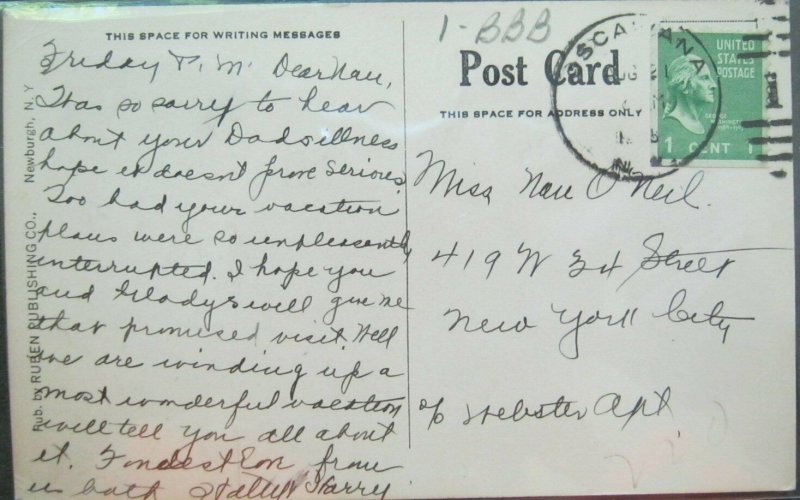 THIS SPACE FOR WRITING MESSAGES
Friday P.M. Dear Nan,
Was so sorry to hear
about your Dads illness
hope it doesn't prove serious.
Too bad your vacation
plans were so unpleasantly
interrupted. I hope you
and Gladys will give me
that promised visit. Well
we are winding up a
most wonderful vacation
will tell you all about
it. Fondest from
us both Harry
Pub. by RUBEN PUBLISHING CO., Newburgh, N. Y.
1-BBB
Post Card
THIS SPACE FOR ADDRESS ONLY
SCA ANA
UNITED
STATES
POSTAGE
GEORGE
WASHINGTON
1 CENT 1
Miss Nan O'Neil.
419 W 34 Street
New York City
c/o Webster Apt.